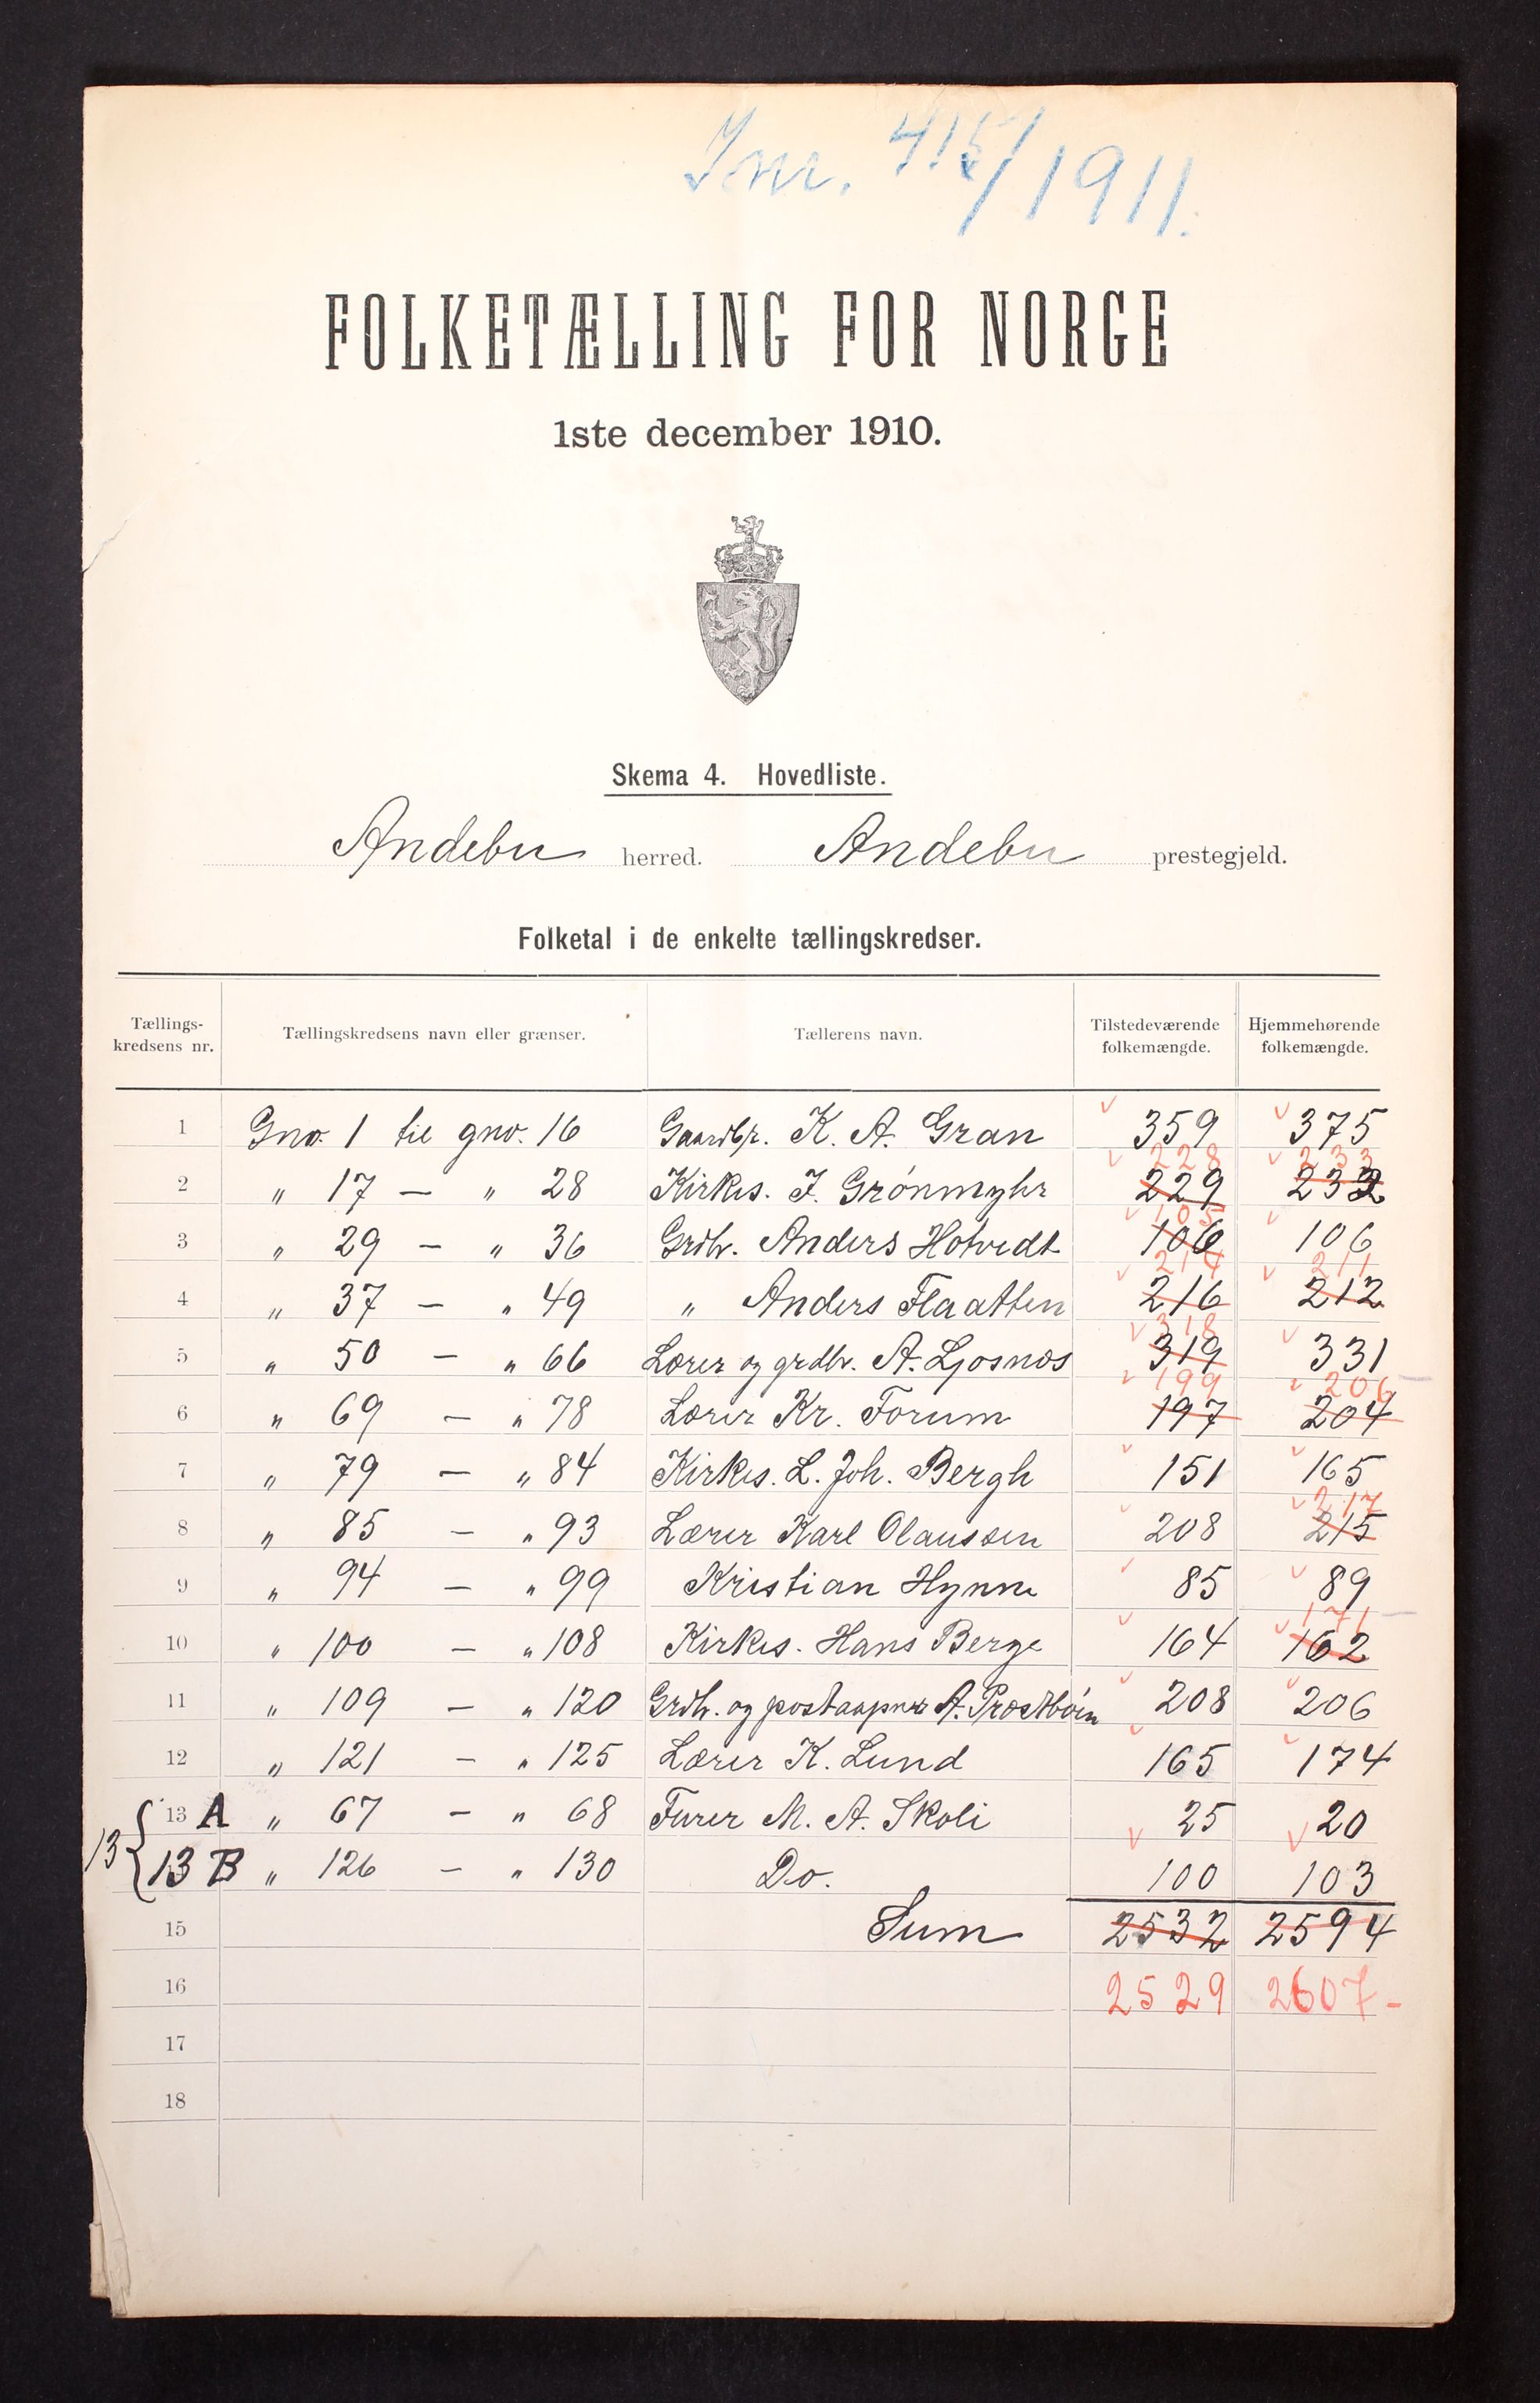 Jnr. 415/1911.
FOLKETÆLLING FOR NORGE
1ste december 1910.
Skema 4. Hovedliste.
Andebu herred. Andebu prestegjeld.
Folketal i de enkelte tællingskredser.
Tællings-kredsens nr. Tællingskredsens navn eller grænser. Tællerens navn. Tilstedeværende folkemængde. Hjemmehørende folkemængde.
1 Gno. 1 til gno. 16 Gaardbr. K. A. Gran 359 375
228 233
2 " 17 — " 28 Kirkes. J. Grønmyhr 229 232
105
3 " 29 — " 36 Grdbr. Anders Hotvedt 106 106
214 211
4 " 37 — " 49 " Anders Flaatten 216 212
318
5 " 50 — " 66 Lærer og grdbr. A. Ljosnæs 319 331
199 206
6 " 69 — " 78 Lærer Kr. Forum 197 204
7 " 79 — " 84 Kirkes. L. Joh. Bergh 151 165
217
8 " 85 — " 93 Lærer Karl Olaussen 208 215
9 " 94 — " 99 Kristian Hynne 85 89
171
10 " 100 — " 108 Kirkes. Hans Berge 164 162
11 " 109 — " 120 Grdb. og postaapner A. Præstbøen 208 206
12 " 121 — " 125 Lærer K. Lund 165 174
13 A " 67 — " 68 Furer M. A. Skoli 25 20
13
13 B " 126 — " 130 Do. 100 103
15 Sum 2532 2594
16 2529 2607 -
17
18